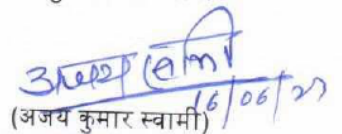 अजय स्वामी
16/06/27
(अजय कुमार स्वामी)